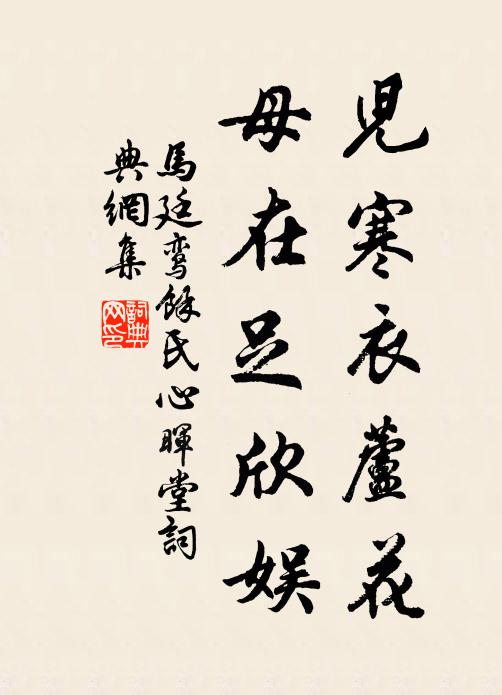 兒寒衣蘆花
母在足欣娱
馬廷鸞餘氏心暉堂詞
典網集
詞典網印